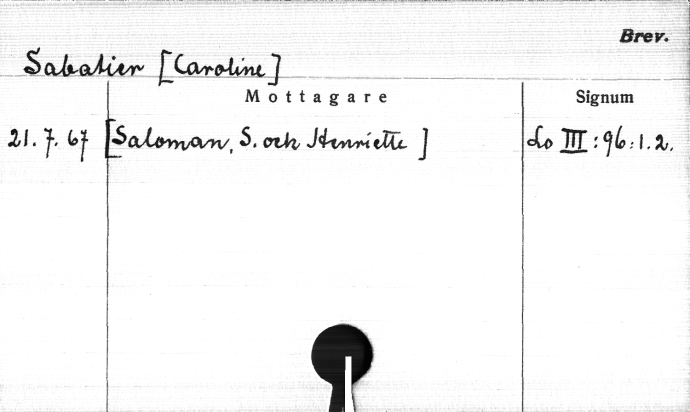 Brev.
Sabatier [Caroline]
Mottagare Signum
21. 7. 67 [Saloman, S. och Henriette ] Lo III : 96 : 1. 2.